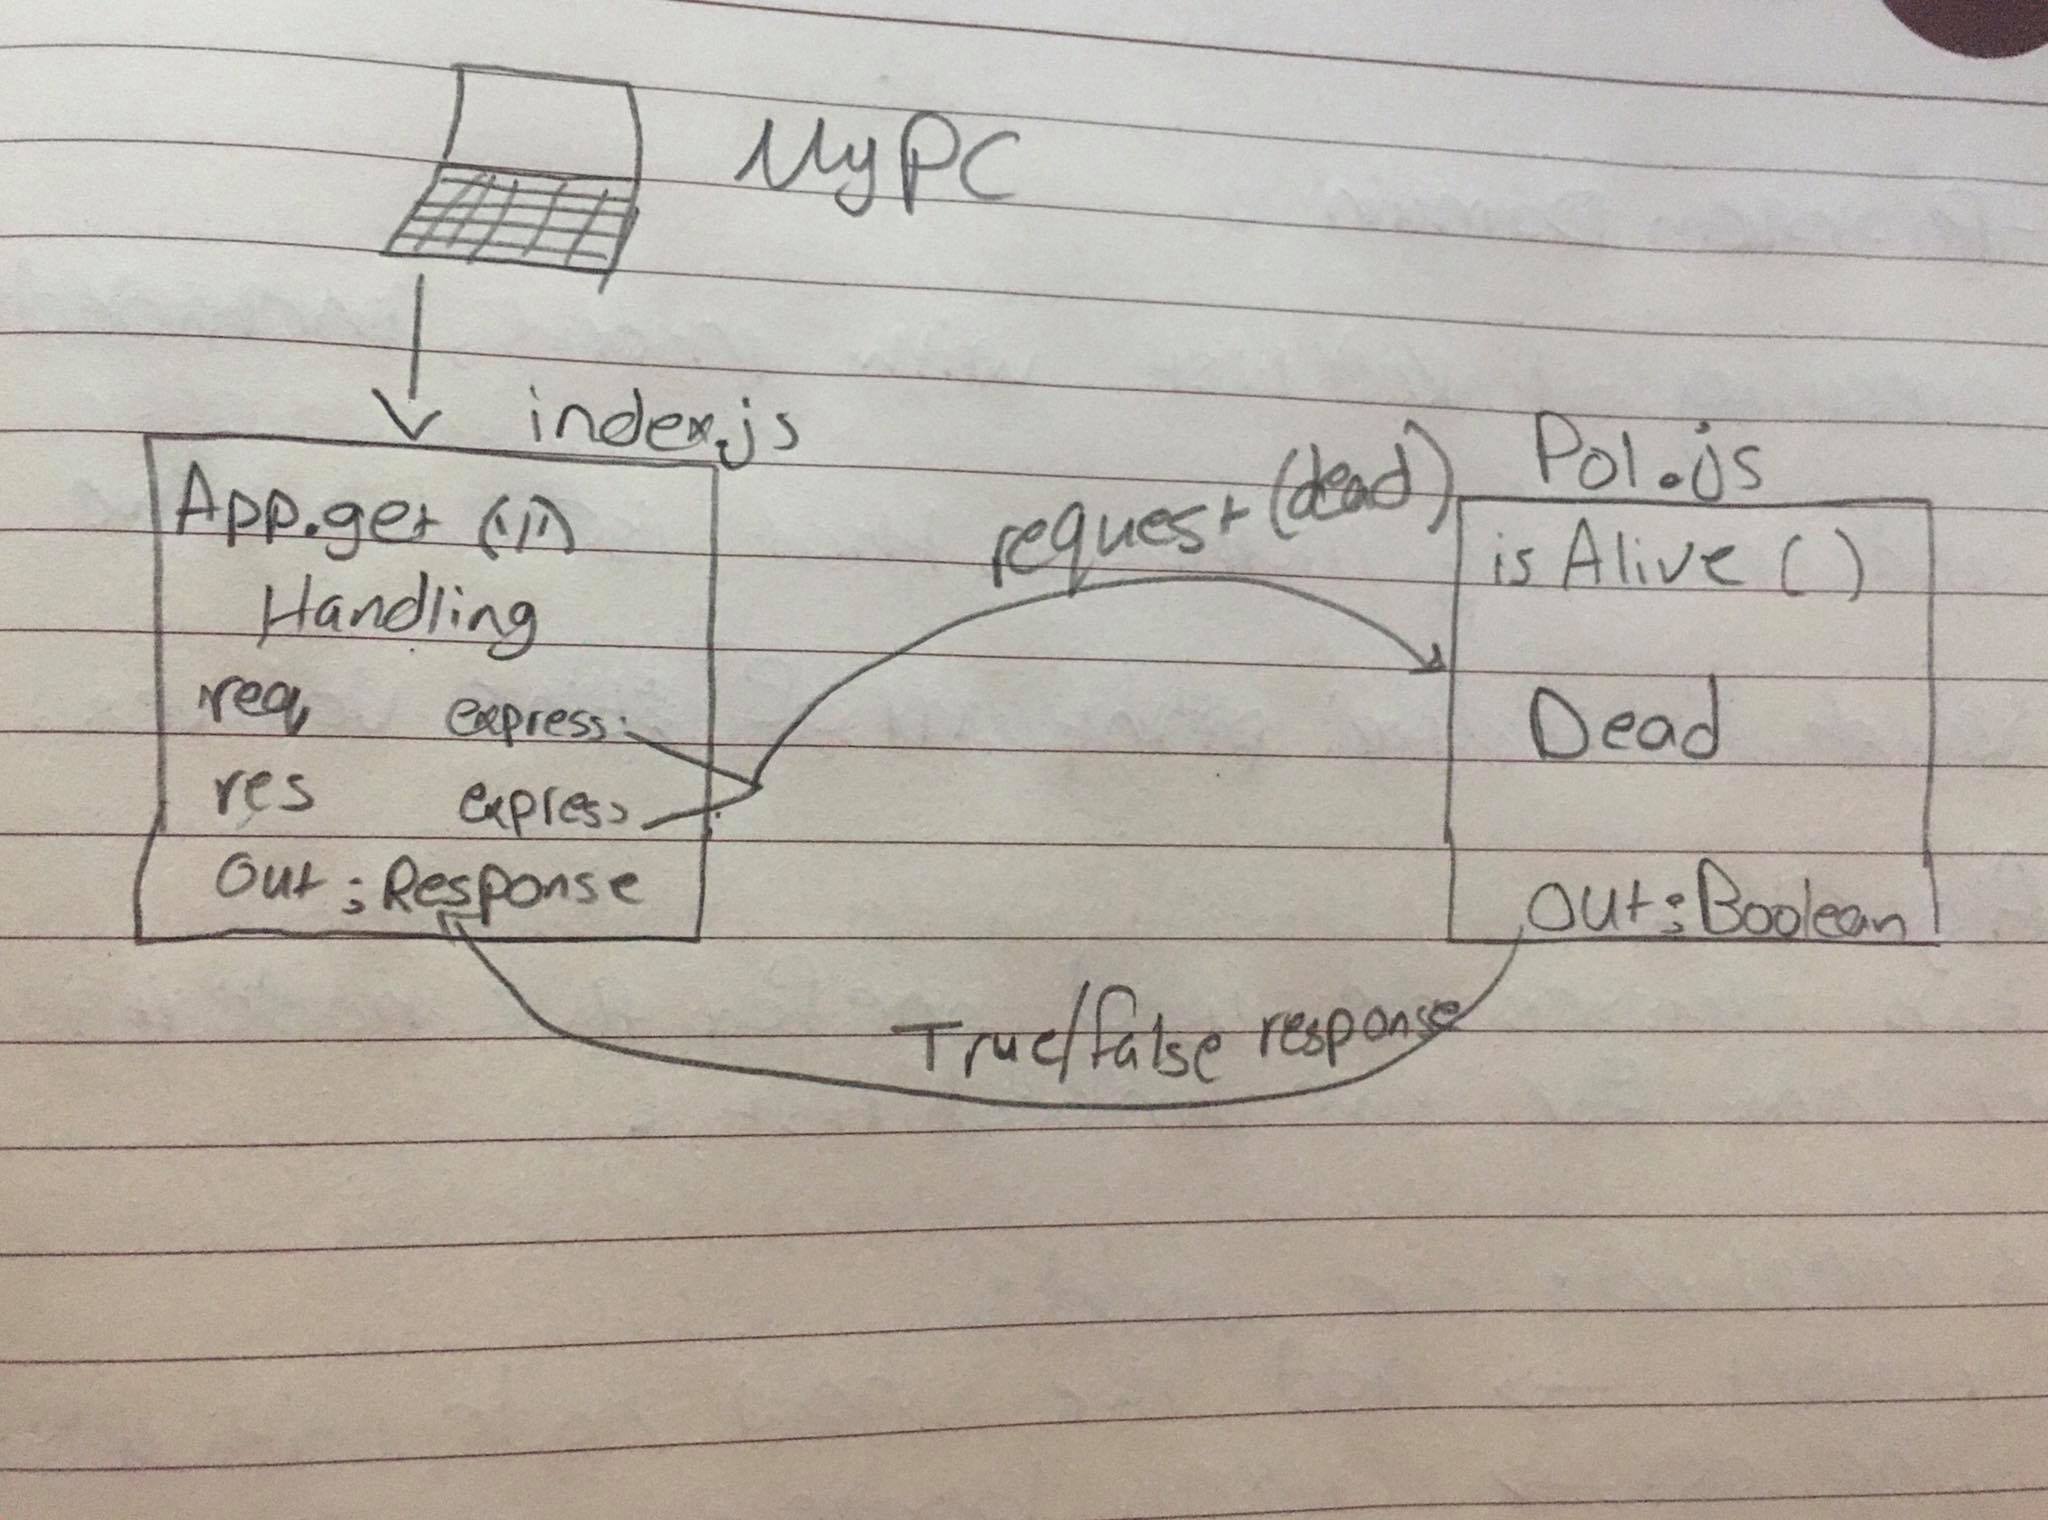 My PC
index.js
App.get ("/")
Handling
req express
res express
Out : Response
request (dead)
Pol.js
is Alive ( )
Dead
out : Boolean
True/false response